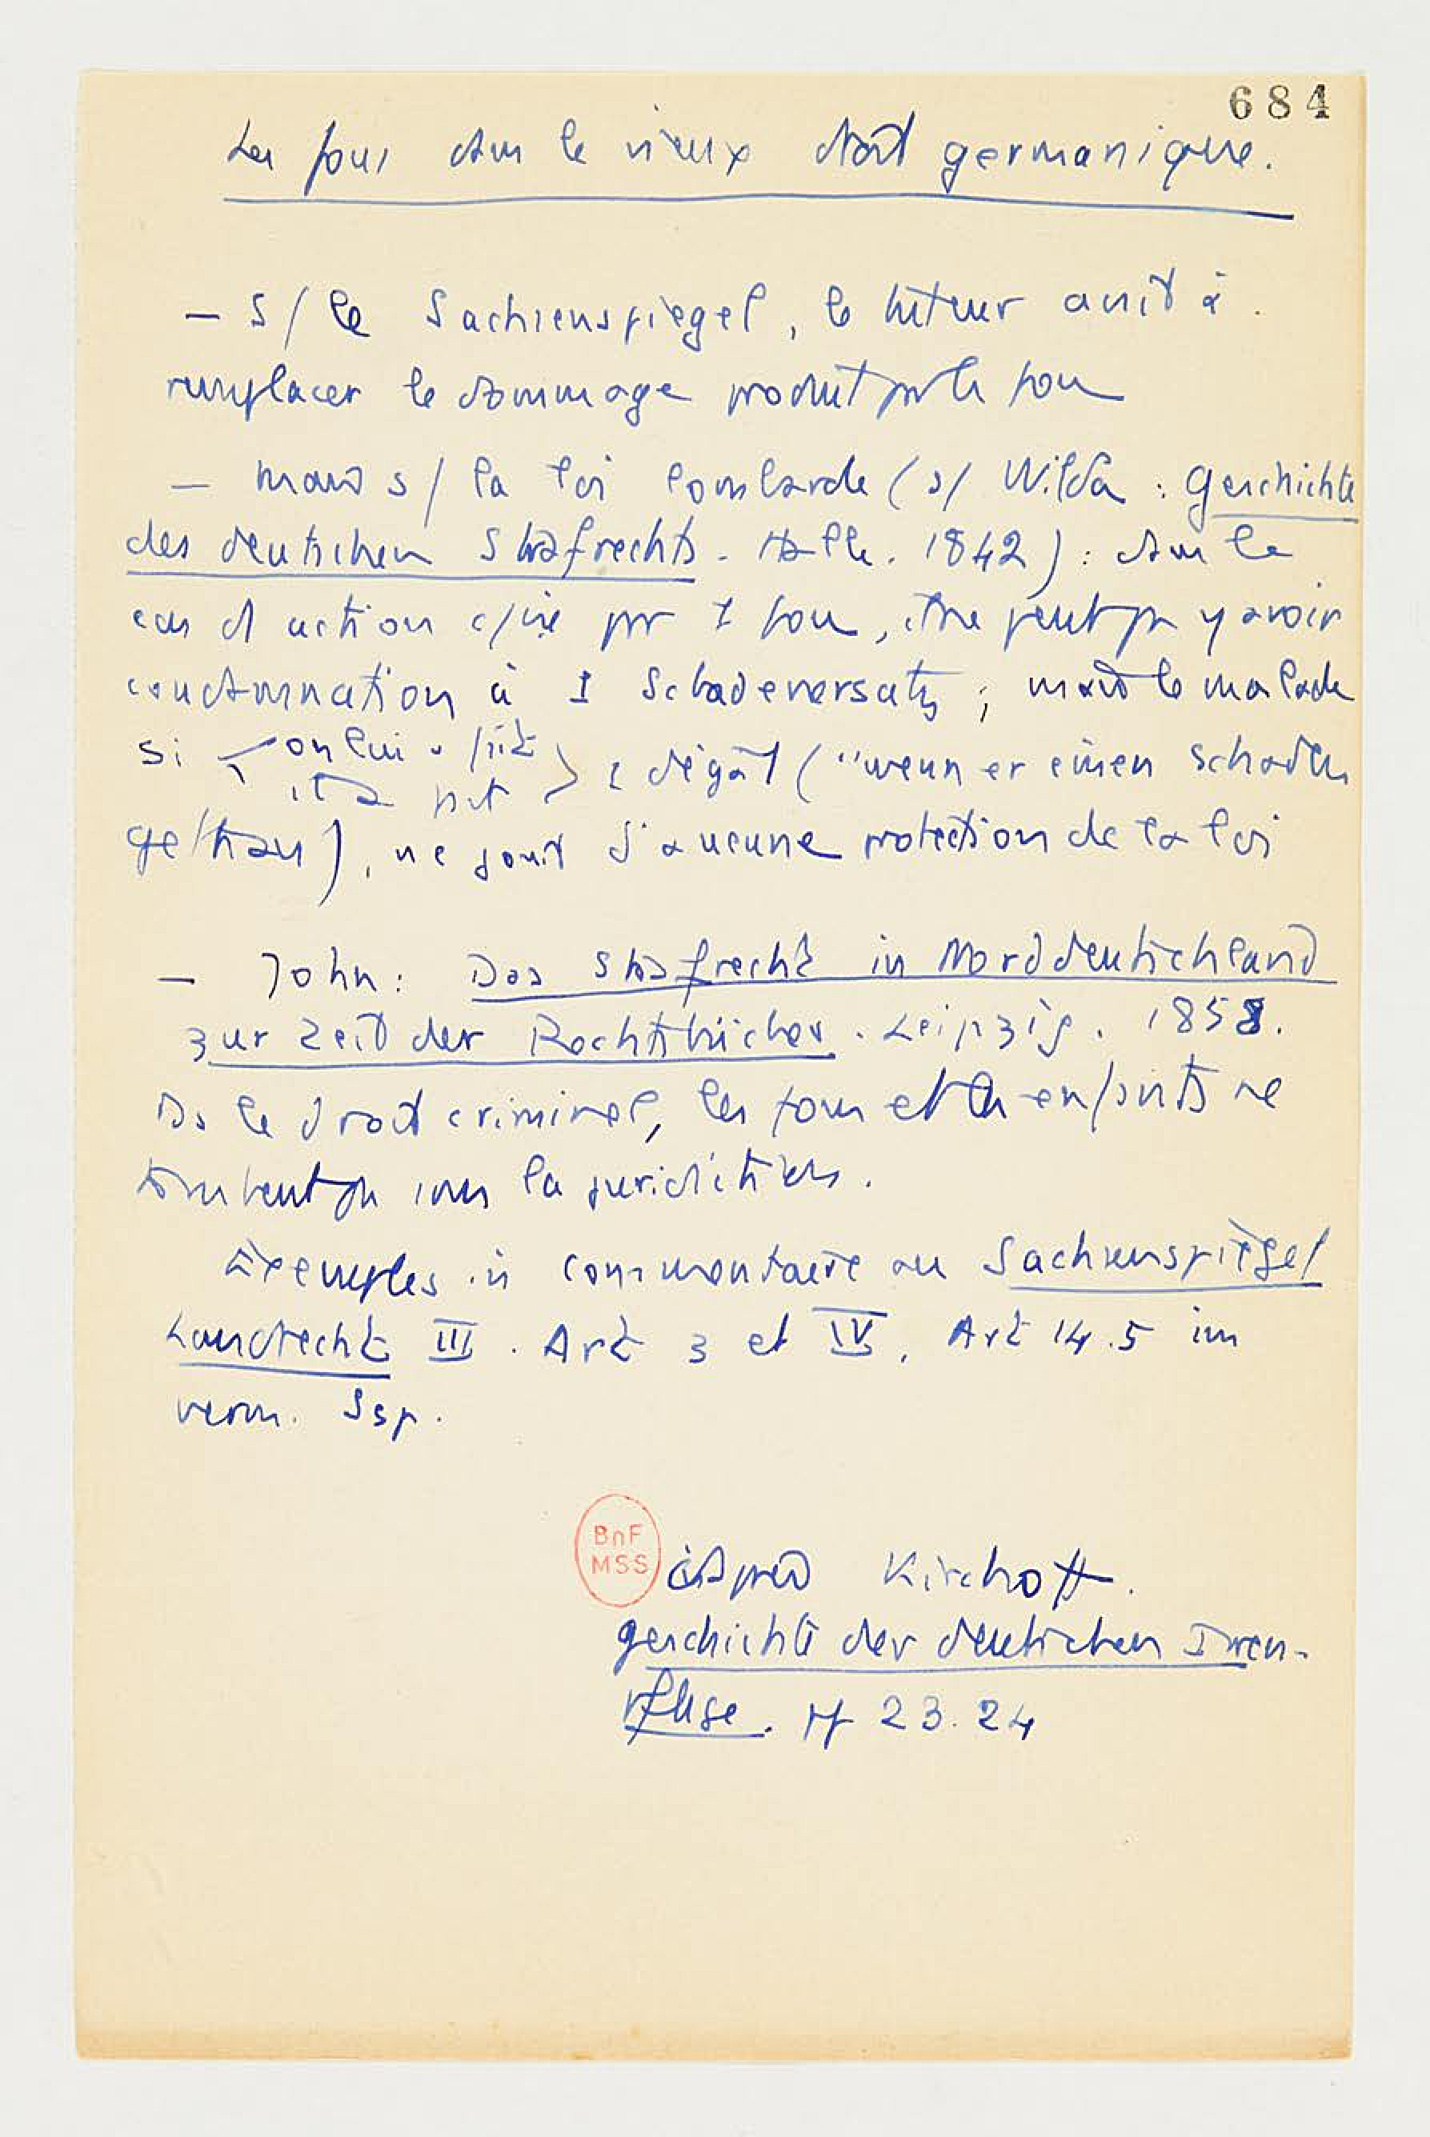 684
Les fous dans le vieux droit germanique.
– S/ le Sachsenspiegel, le tuteur avait à
remplacer le dommage produit par le fou
– mais s/ la loi lombarde (s/ Wilda : Geschichte
des deutschen Strafrechts. Halle. 1842) : dans le
cas d'action c/ise par 1 fou, il ne peut pas y avoir
condamnation à 1 Schadeversatz ; mais le malade
si on lui a fait
il a fait
1 dégât ("wenn er einen Schaden
gethan), ne jouit d'aucune protection de la loi
– John : Das Strafrecht in Norddeutschland
zur Zeit der Rechtsbücher. Leipzig. 1858.
Ds le droit criminel, les fous et les enfants ne
tombent pas sous la juridiction.
Exemples in commentaire au Sachsenspiegel
Landrecht III. Art 3 et IV. Art 14.5 im
verm. Ssp.
BnF
MSS
cité d'après Kirchhoff.
Geschichte der deutschen Irren-
pflege. pp 23.24